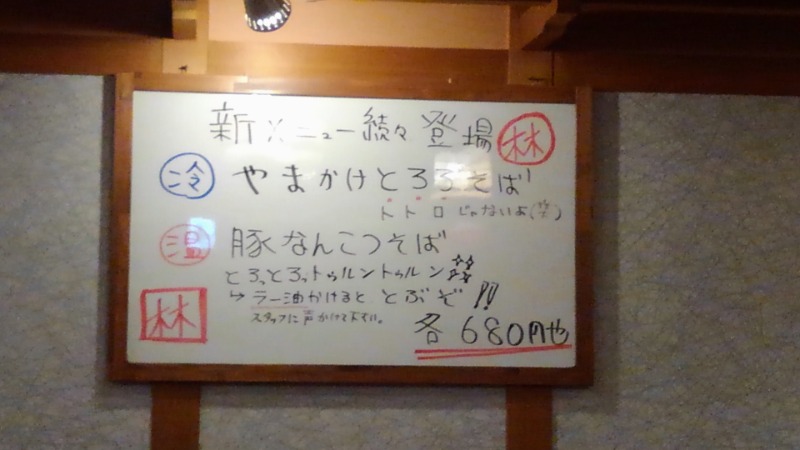 新メニュー続々登場 林
冷 やまかけとろろそば
トトロじゃないよ(笑)
温 豚なんこつそば
とろっとろっトゥルントゥルン
↳ラー油かけると とぶぞ!!
スタッフに声かけて下さい。
林
各680円也